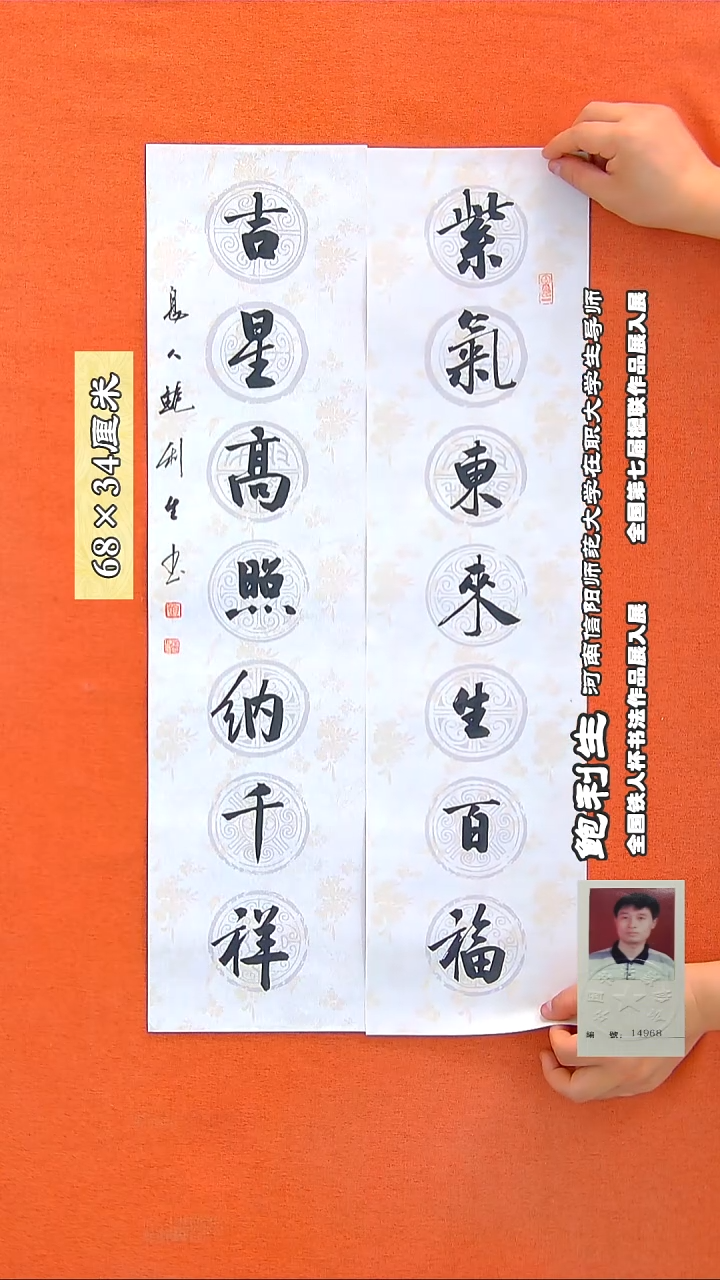 紫氣東來生百福
吉星高照纳千祥
息人鲍利生书
68×34厘米
鲍利生 河南信阳师范大学在职大学生导师
全国铁人杯书法作品展入展 全国第七届楹联作品展入展
編 號: 14968